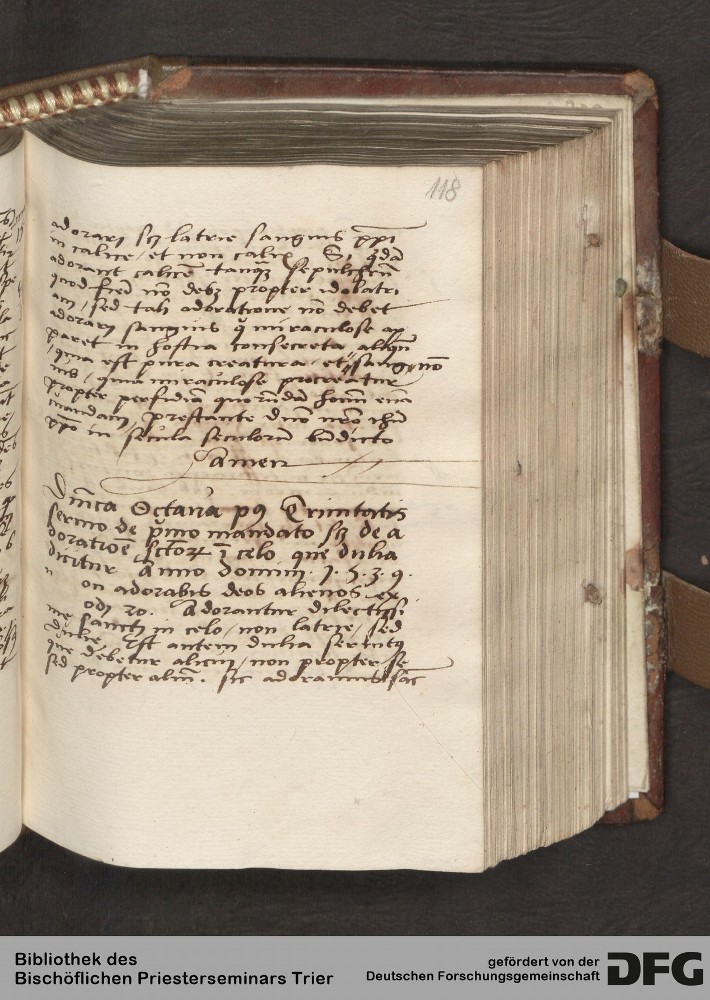 118
adorari scz latrie sanguis xpi
in calice / et non calix Si qdā
adorant calicē tanq̄ sepulchrū
quod fieri nō debz propter idolatri
am / sed tali adoratione nō debet
adorari sanguis q miraculose ap
paret in hostia consecrata aliqn̄
quia est pura creatura et sanguis nō
quia miraculose procreatur
propter perfidiam quorundā homī
mandam prestante dno nro ihū
xpo in secula seculorū bn̄dicto
Amen
Dn̄ica Octava p9 Trinitatis
sermo de p̄mo mandato scz de a
doratiōe sctōrꝝ ī celo, que dulia
dicitur Anno domini . 1.5.3.9.
n
on adorabis deos alienos . ex
odi 20. Adorantur dilectissi
me sancti in celo / non latrie / sed
dulie Est autem dulia servitꝰ
que debetur alicui / non propter se
sed propter aliū . sic adoramus sāc
Bibliothek des
Bischöflichen Priesterseminars Trier
gefördert von der
Deutschen Forschungsgemeinschaft
DFG